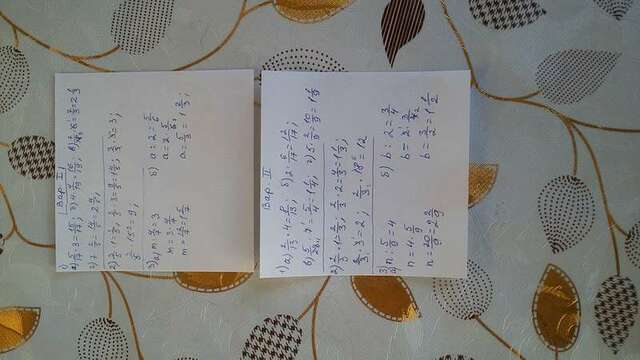 1) Вар. I
а) 5/17 · 3 = 15/17; б) 4 · 4/19 = 16/19; в) 8 = 7/3 = 2 1/3
г) 7 · 2/5 = 14/5 = 2 4/5;
2) 3/5 · 1 = 3/5; 3/5 · 3 = 9/5 = 1 4/5; 3/5 · 5 = 3;
3/5 · 15 = 9;
3) а) m : 4/7 = 3 б) a : 2 = 5/6
m = 3 · 4/7 a = 2 · 5/6
m = 12/7 = 1 5/7 a = 5/3 = 1 2/3;
Вар. II
1) а) 2/13 · 4 = 8/13; б) 2 · 6/17 = 12/17;
в) 5/28 · 7 = 5/4 = 1 1/4; г) 5 · 2/9 = 10/9 = 1 1/9
2) 2/3 · 1 = 2/3; 2/3 · 2 = 4/3 = 1 1/3;
2/3 · 3 = 2; 2/3 · 18 = 12
3) а) n : 5/9 = 4 б) b : 2 = 3/4
n = 4 · 5/9 b = 2 · 3/4
n = 20/9 = 2 2/9 b = 3/2 = 1 1/2